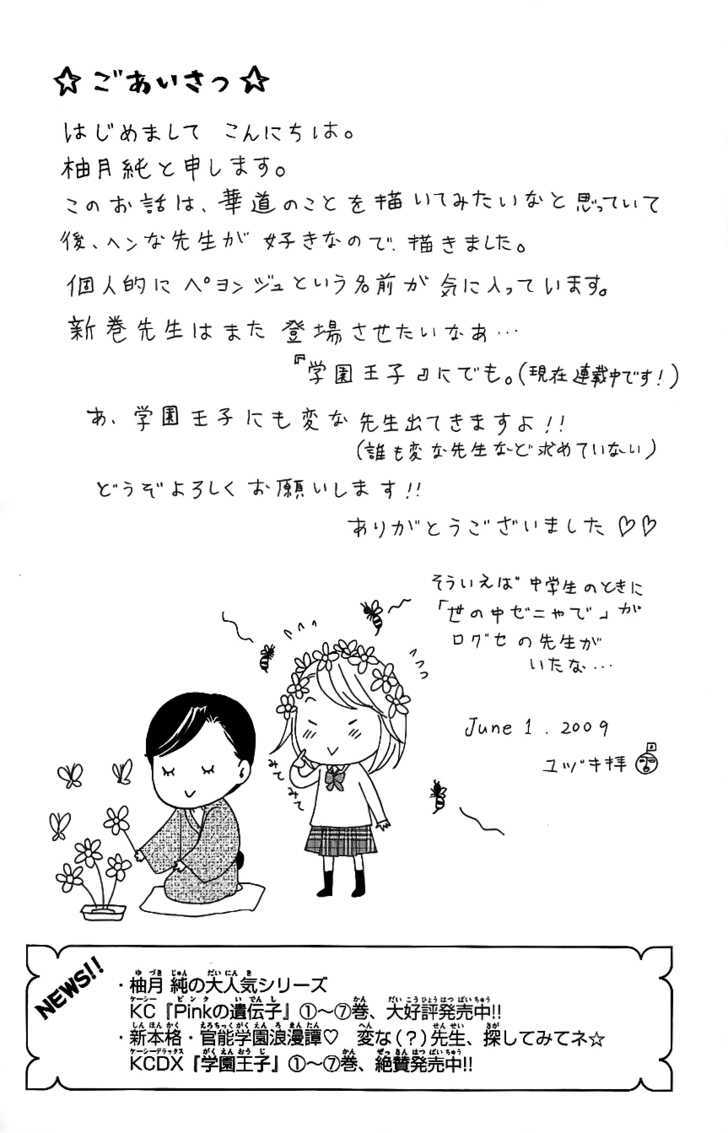 ☆ごあいさつ☆
はじめまして こんにちは。
柚月純と申します。
このお話は、華道のことを描いてみたいなと思っていて
後、ヘンな先生が好きなので、描きました。
個人的にペヨンジュという名前が気に入っています。
新巻先生はまた登場させたいなぁ…
『学園王子』にでも。(現在連載中です!)
あ、学園王子にも変な先生出てきますよ!!
(誰も変な先生など求めていない)
どうぞよろしくお願いします!!
ありがとうございました♡♡
そういえば中学生のときに
「世の中ゼニャで」が
口グセの先生が
いたな…
June 1. 2009
ユヅキ拝
みてみて
NEWS!!
・柚月 純の大人気シリーズ
KC『Pinkの遺伝子』①〜⑦巻、大好評発売中!!
・新本格・官能学園浪漫譚♡ 変な(?)先生、探してみてネ☆
KCDX『学園王子』①〜⑦巻、絶賛発売中!!